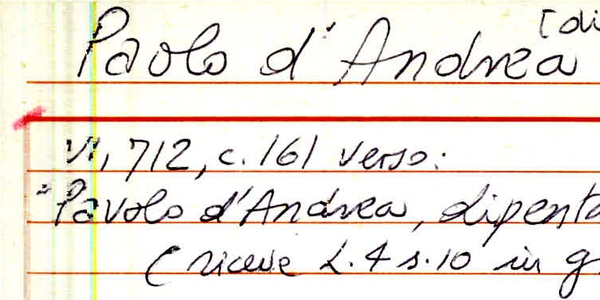 Paolo d'Andrea [di
VI, 712, c. 161 verso:
"Pavolo d'Andrea, dipento
( riceve L. 4 s. 10 in g